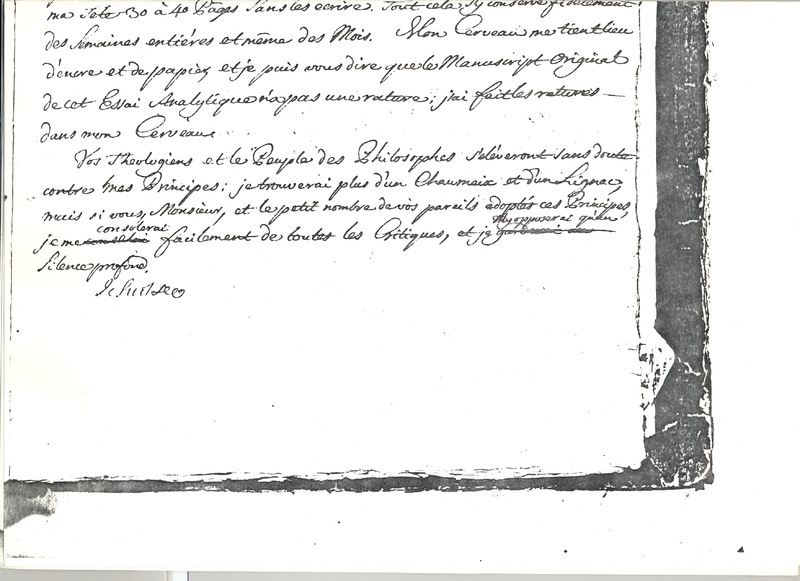 ma Tête 30 à 40 Pages sans les ecrire. Tout cela s'y conserve fidelement
des Semaines entiéres et même des Mois. Mon Cerveau me tient lieu
d'encre et de papier, et je puis vous dire que le Manuscript Original
de cet Essai Analytique n'a pas une rature; j'ai fait les ratures
dans mon Cerveau.
Vos Théologiens et le Peuple des Philosophes s'éléveront sans doute
contre mes Principes: je trouverai plus d'un Chaumeix et d'un Lignac,
mais si vous, Monsieur, et le petit nombre de vos pareils adoptés ces Principes,
consolerai n'y opposerai qu'un
je me facilement de toutes les Critiques, et je
silence profond.
Je suis &c